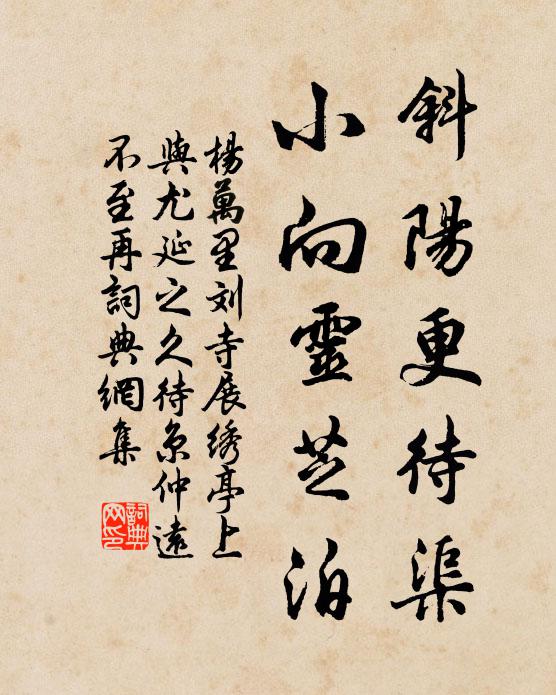 斜陽更待渠
小向靈芝泊
楊萬里刘寺展綉亭上
與尤延之久待京仲遠
不至再詞典網集
詞典网印